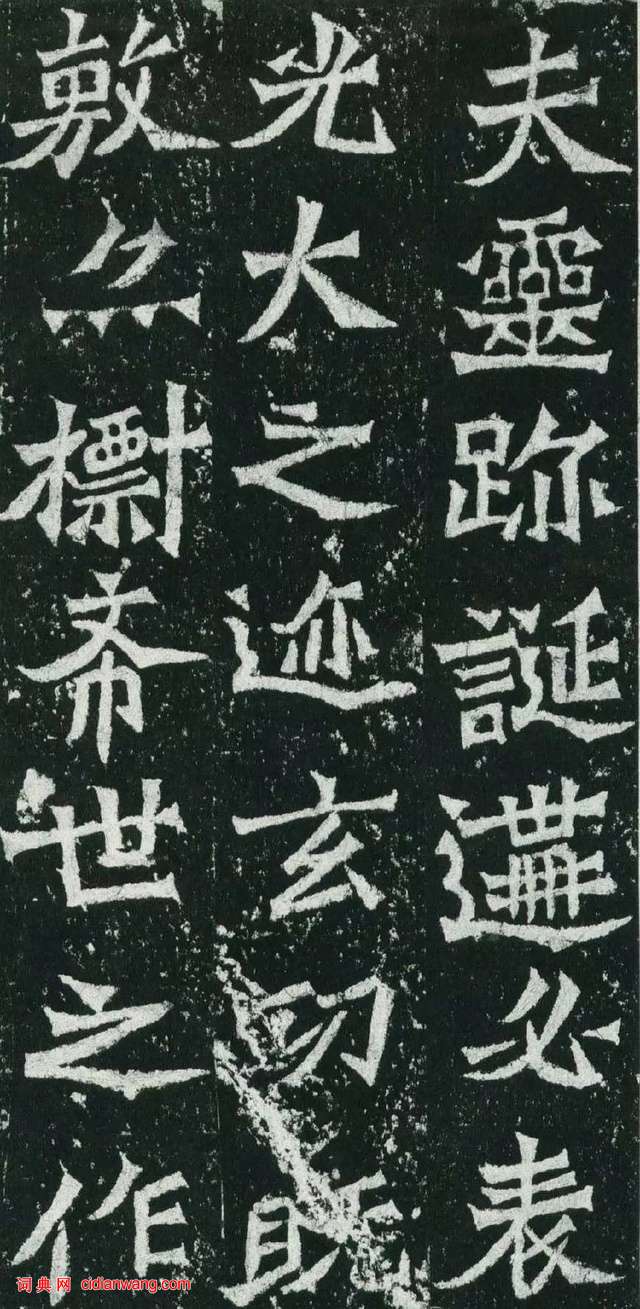 夫靈跡誕遘必表
光大之迹玄功既
敷亦標希世之作
词典网 cidianwang.com